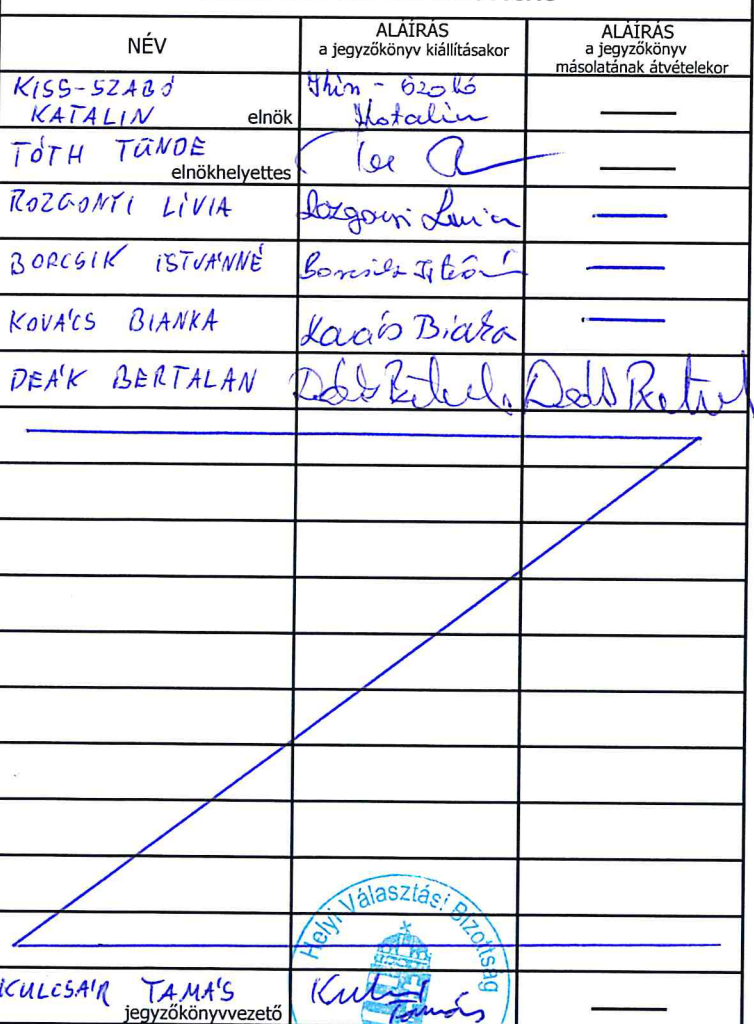 NÉV
ALÁÍRÁS
a jegyzőkönyv kiállításakor
ALÁÍRÁS
a jegyzőkönyv
másolatának átvételekor
KISS-SZABÓ
KATALIN elnök
Katalin
TÓTH TÜNDE
elnökhelyettes
ROZGONYI LÍVIA
Rozgonyi Lívia
BORCSIK ISTVÁNNÉ
Borcsik Istvánné
KOVÁCS BIANKA
Kovács Bianka
DEÁK BERTALAN
Helyi Választási Bizottság
KULCSÁR TAMÁS
jegyzőkönyvvezető
Tamás